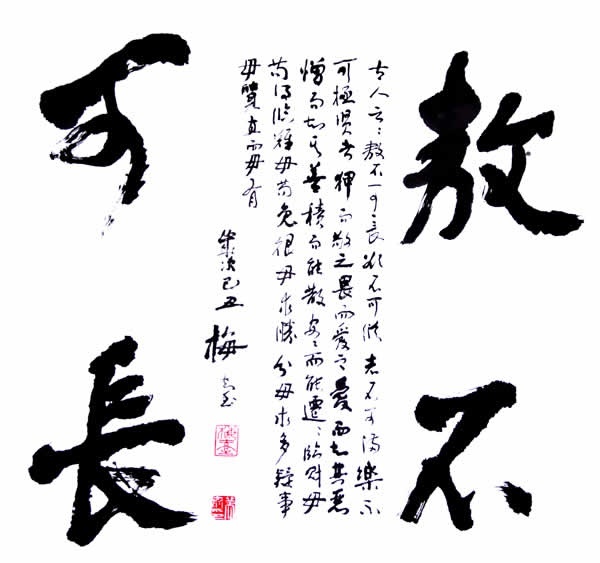 敖不
可長
古人言敖不可長欲不可從志不可滿樂不
可極賢者狎而敬之畏而愛之愛而知其惡
憎而知其善積而能散安安而能遷臨財毋
苟得臨難毋苟免很毋求勝分毋求多疑事
毋直而毋有
歲次己丑梅